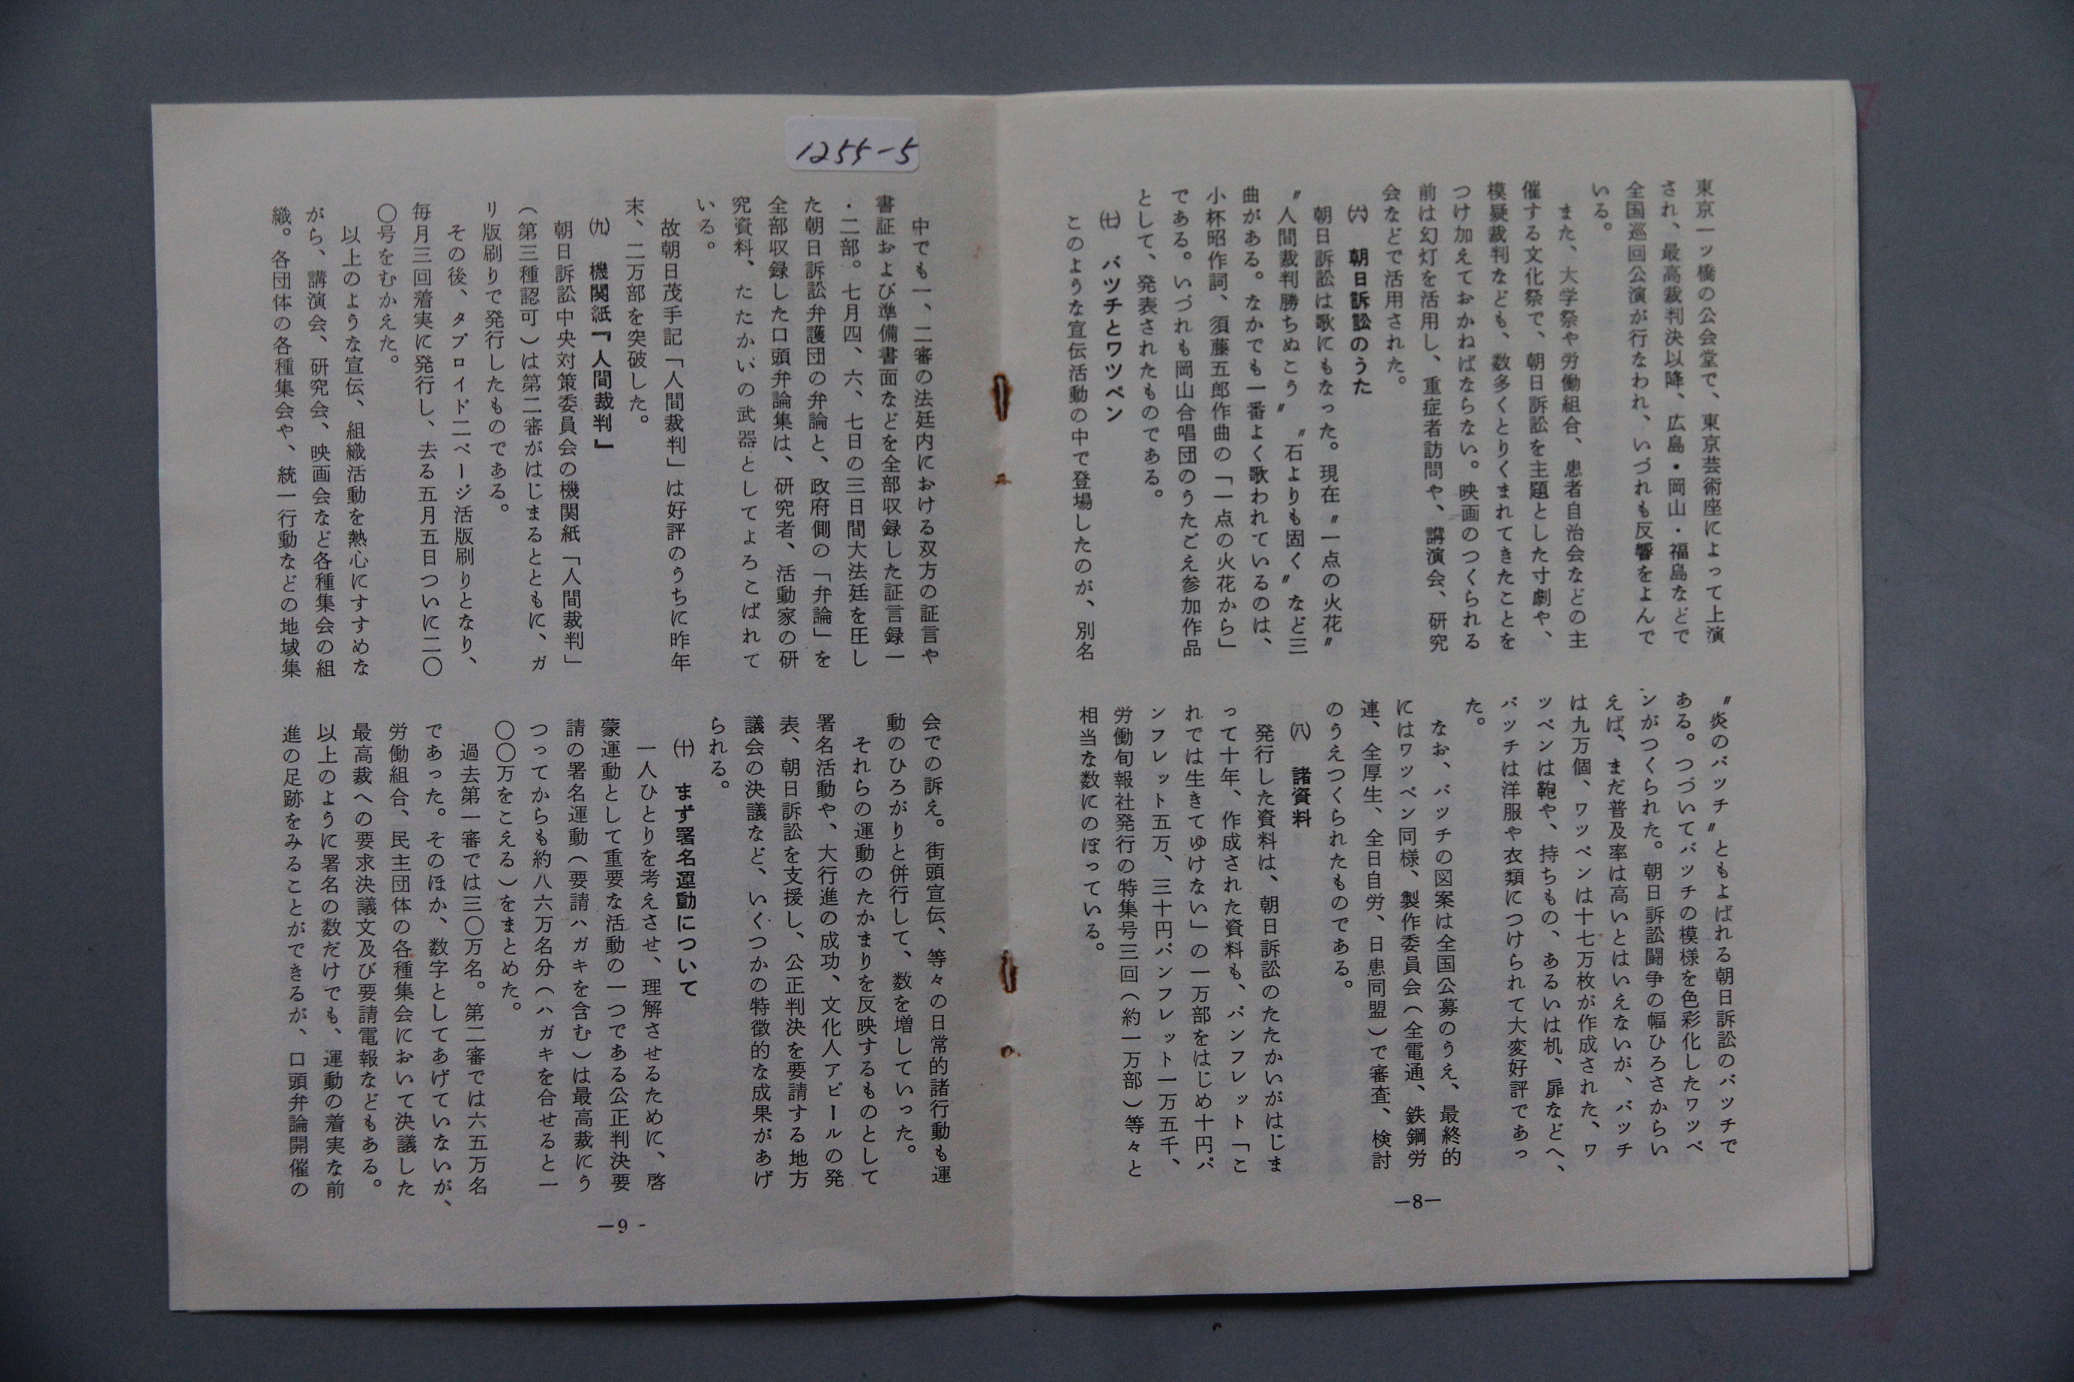 東京一ッ橋の公会堂で、東京芸術座によって上演
され、最高裁判決以降、広島・岡山・福島などで
全国巡回公演が行なわれ、いづれも反響をよんで
いる。
また、大学祭や労働組合、患者自治会などの主
催する文化祭で、朝日訴訟を主題とした寸劇や、
模疑裁判なども、数多くとりくまれてきたことを
つけ加えておかねばならない。映画のつくられる
前は幻灯を活用し、重症者訪問や、講演会、研究
会などで活用された。
㈥ 朝日訴訟のうた
朝日訴訟は歌にもなった。現在〃一点の火花〃
〃人間裁判勝ちぬこう〃〃石よりも固く〃など三
曲がある。なかでも一番よく歌われているのは、
小杯昭作詞、須藤五郎作曲の「一点の火花から」
である。いづれも岡山合唱団のうたごえ参加作品
として、発表されたものである。
㈦ バツチとワツペン
このような宣伝活動の中で登場したのが、別名
〃炎のバッチ〃ともよばれる朝日訴訟のバッチで
ある。つづいてバッチの模様を色彩化したワッペ
ンがつくられた。朝日訴訟闘争の幅ひろさからい
えば、まだ普及率は高いとはいえないが、バッチ
は九万個、ワッペンは十七万枚が作成された、ワ
ッペンは鞄や、持ちもの、あるいは机、扉などへ、
バッチは洋服や衣類につけられて大変好評であっ
た。
なお、バッチの図案は全国公募のうえ、最終的
にはワッペン同様、製作委員会（全電通、鉄鋼労
連、全厚生、全日自労、日患同盟）で審査、検討
のうえつくられたものである。
㈧ 諸資料
発行した資料は、朝日訴訟のたたかいがはじま
って十年、作成された資料も、パンフレット「こ
れでは生きてゆけない」の一万部をはじめ十円パ
ンフレット五万、三十円パンフレット一万五千、
労働旬報社発行の特集号三回（約一万部）等々と
相当な数にのぼっている。
—8—
1255-5
中でも一、二審の法廷内における双方の証言や
書証および準備書面などを全部収録した証言録一
・二部。七月四、六、七日の三日間大法廷を圧し
た朝日訴訟弁護団の弁論と、政府側の「弁論」を
全部収録した口頭弁論集は、研究者、活動家の研
究資料、たたかいの武器としてよろこばれて
いる。
故朝日茂手記「人間裁判」は好評のうちに昨年
末、二万部を突破した。
㈨ 機関紙『人間裁判』
朝日訴訟中央対策委員会の機関紙「人間裁判」
（第三種認可）は第二審がはじまるとともに、ガ
リ版刷りで発行したものである。
その後、タブロイド二ページ活版刷りとなり、
毎月三回着実に発行し、去る五月五日ついに二〇
〇号をむかえた。
以上のような宣伝、組織活動を熱心にすすめな
がら、講演会、研究会、映画会など各種集会の組
織。各団体の各種集会や、統一行動などの地域集
会での訴え。街頭宣伝、等々の日常的諸行動も運
動のひろがりと併行して、数を増していった。
それらの運動のたかまりを反映するものとして
署名活動や、大行進の成功、文化人アピールの発
表、朝日訴訟を支援し、公正判決を要請する地方
議会の決議など、いくつかの特徴的な成果があげ
られる。
㈩ まず署名運動について
一人ひとりを考えさせ、理解させるために、啓
蒙運動として重要な活動の一つである公正判決要
請の署名運動（要請ハガキを含む）は最高裁にう
つってからも約八六万名分（ハガキを合せると一
〇〇万をこえる）をまとめた。
過去第一審では三〇万名。第二審では六五万名
であった。そのほか、数字としてあげていないが、
労働組合、民主団体の各種集会において決議した
最高裁への要求決議文及び要請電報などもある。
以上のように署名の数だけでも、運動の着実な前
進の足跡をみることができるが、口頭弁論開催の
—9-